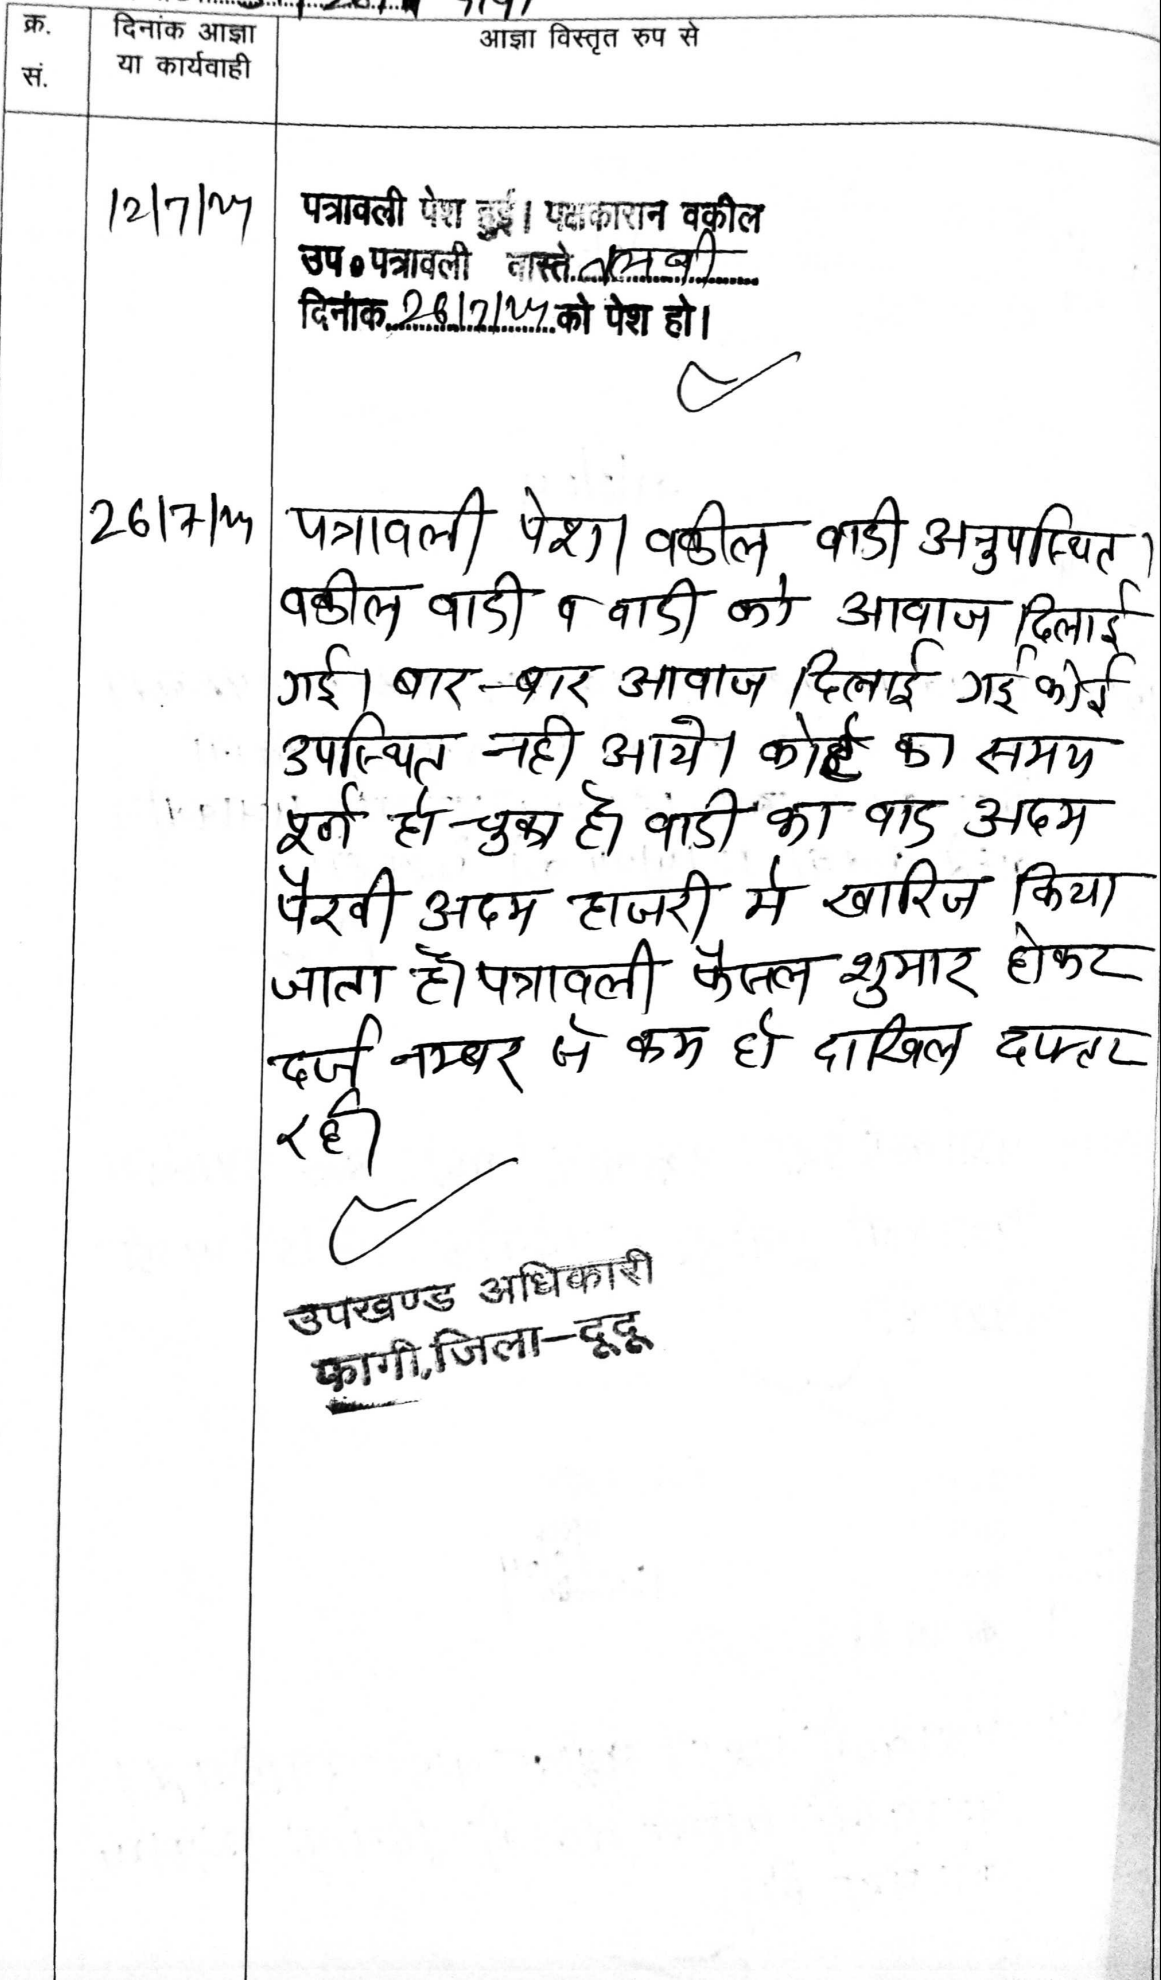 क्र. सं.
दिनांक आज्ञा या कार्यवाही
आज्ञा विस्तृत रुप से
12/7/24
पत्रावली पेश हुई। पक्षकारान वकील
उप० पत्रावली वास्ते
दिनांक 26/7/24 को पेश हो।
26/7/24
पत्रावली पेश। वकील वादी अनुपस्थित।
वकील वादी व वादी को आवाज दिलाई
गई। बार-बार आवाज दिलाई गई कोई
उपस्थित नही आये। कोर्ट का समय
पूर्ण हो चुका है। वादी का वाद अदम
पैरवी अदम हाजरी मे खारिज किया
जाता है। पत्रावली फैसल शुमार होकर
दर्ज नम्बर से कम हो दाखिल दफ्तर
रहे।
उपखण्ड अधिकारी
फागी, जिला-दूदू